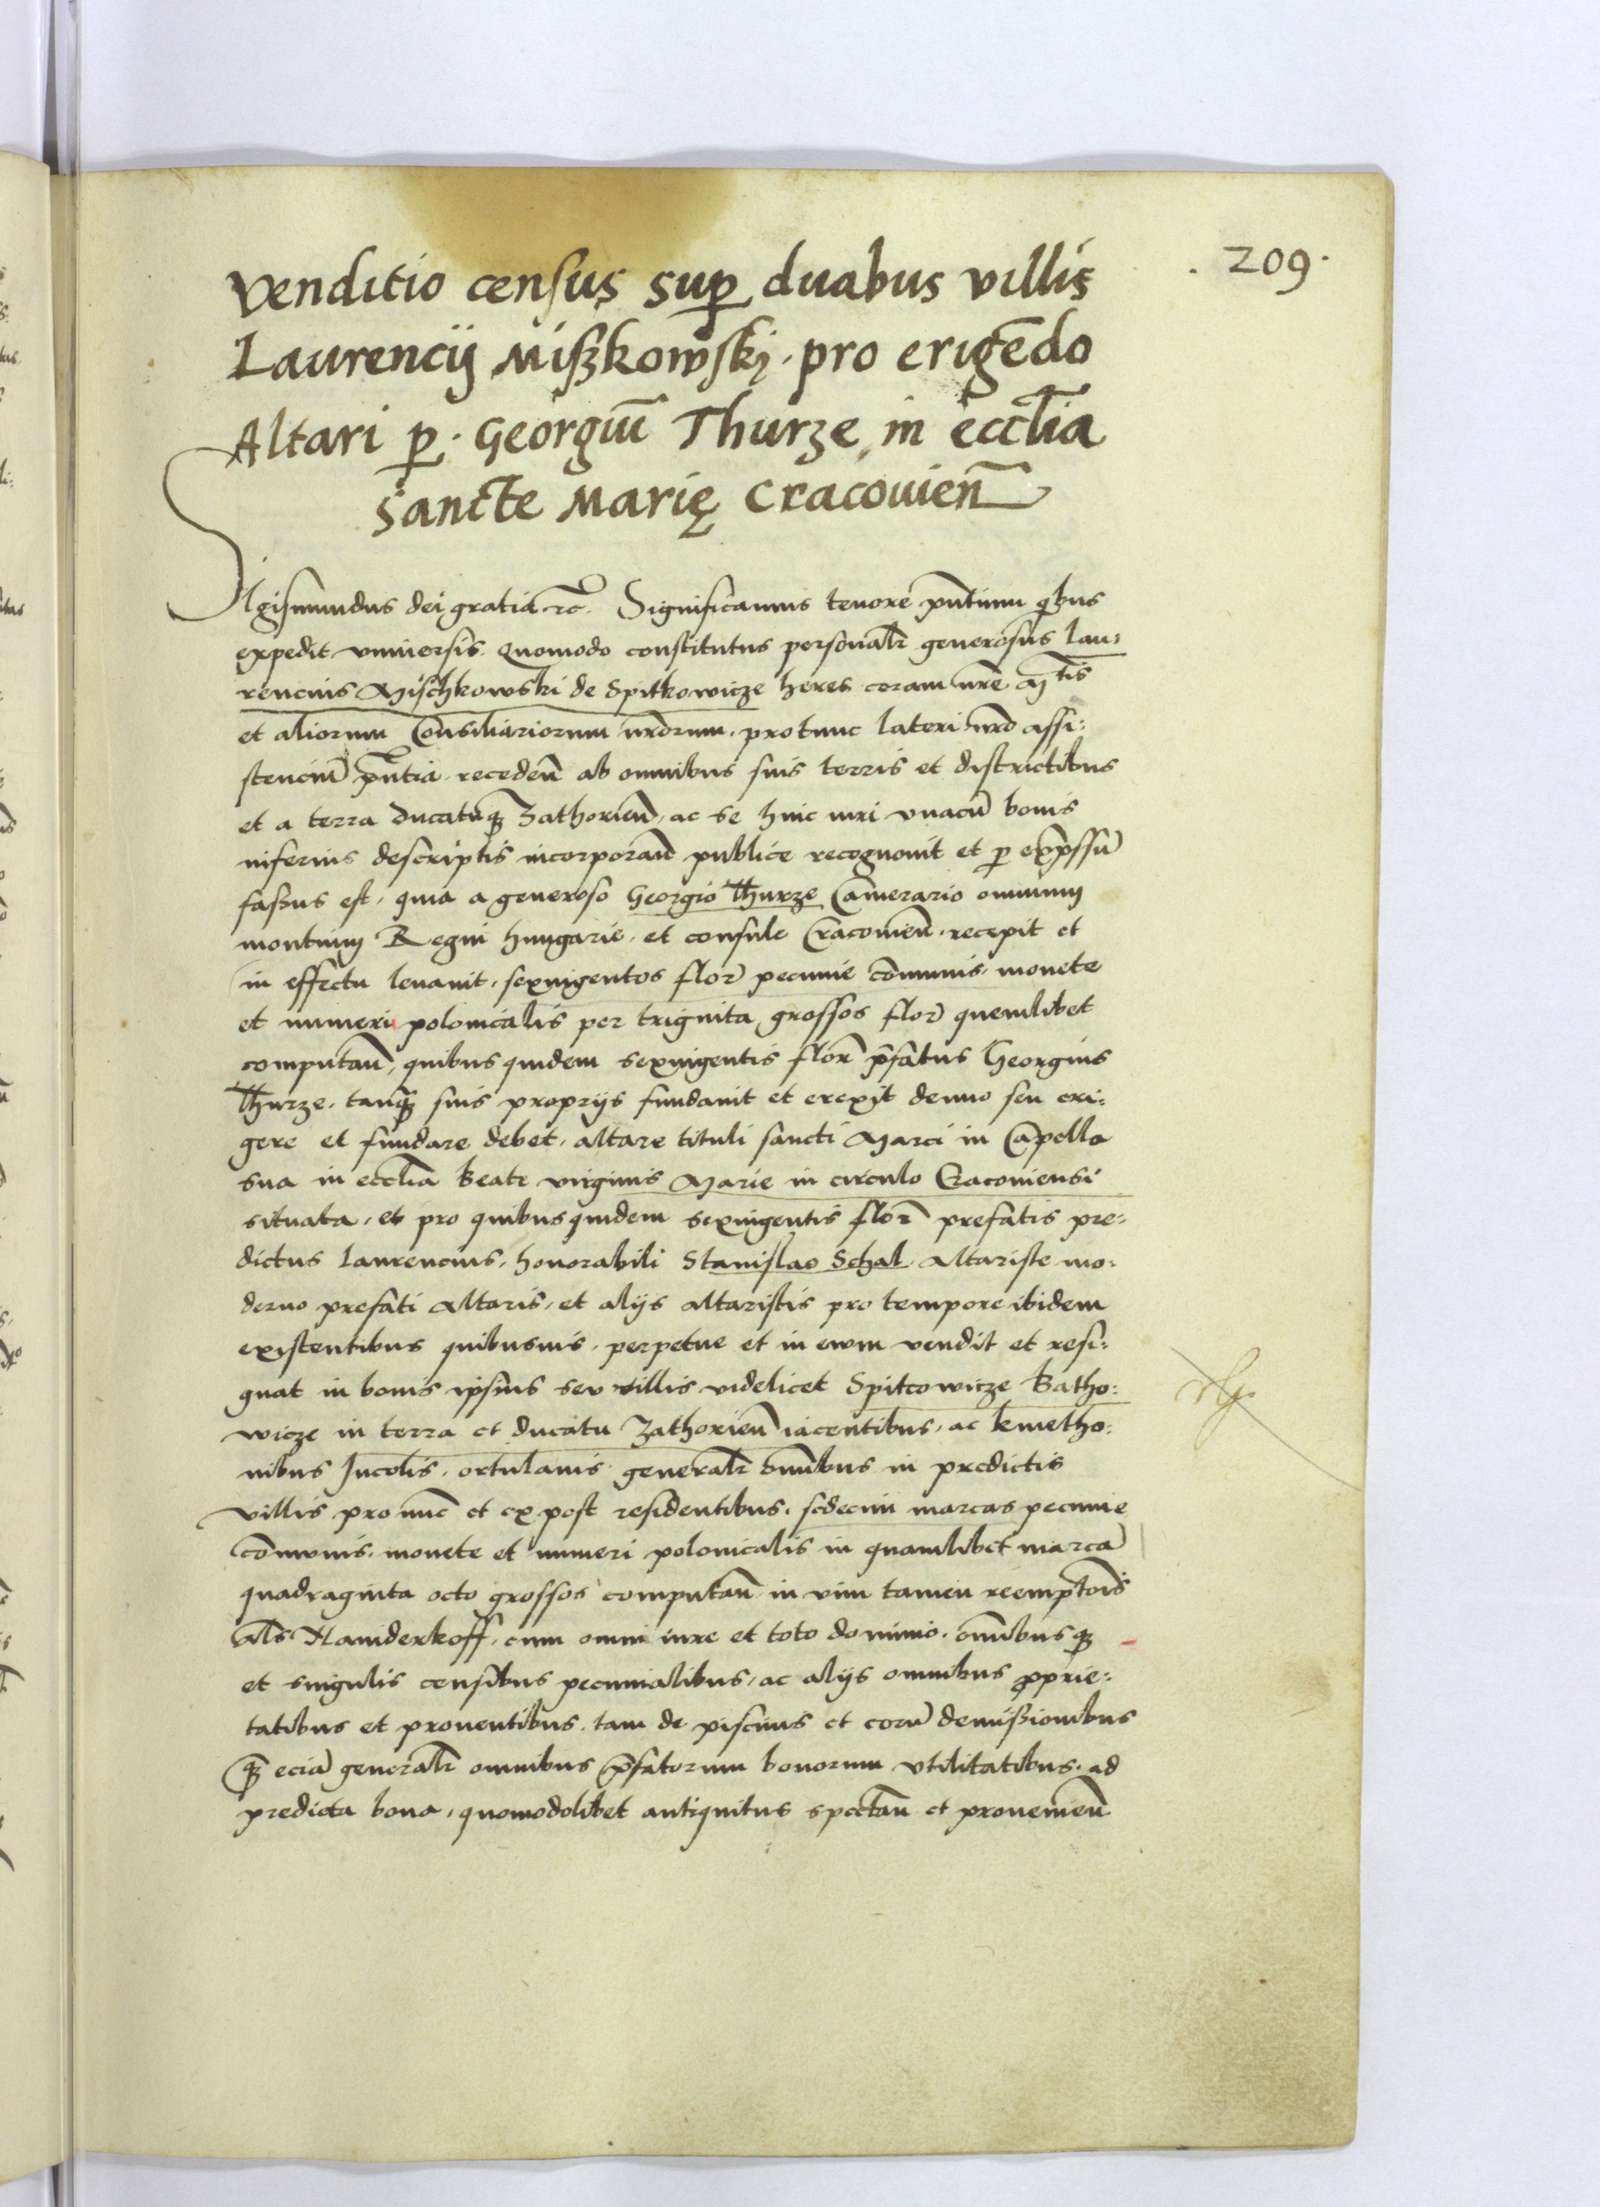 . 209 .
Venditio census sup duabus villis
Laurencij Mißkowskj · pro erigēdo
Altari p · Georgiū Thurze in eccl̄ia
Sancte Marię Cracouien̄
Sigismundus dei gratia rc̄. Significamus tenore pn̄tium qbus
expedit vniuersis. Quomodo constitutus personalr̄ generosus Lau:
rencius Mischkowski de Spitkowicze heres coram nr̄e Mtis
et aliorum Consiliariorum nr̄orum, protunc lateri nr̄o assi:
stenciū pn̄tia recedeñ ab omnibus suis terris et districtibus
et a terra ducatuq Zathorien̄, ac se huic iuri vnacū bonis
inferius descriptis incorporan̄ publice recognouit et p exp̄ssū
faßus est, quia a generoso Georgio Thurze Camerario omnium
montium Regni hungarie, et consule Cracouien̄, recepit et
in effectu leuauit, sexingentos flor̄ pecunie cōmunis, monete
et numeri polonicalis per triginta grossos flor̄ quemlibet
computan̄, quibus quidem sexingentis flor̄ p̄fatus Georgius
Thurze, tanq̄ suis proprijs fundauit et erexit denuo seu eri:
gere et fundare debet, altare tituli sancti Marci in Capella
sua in eccl̄ia Beate virginis Marie in circulo Cracouiensi
situata, et pro quibus quidem sexingentis flor̄ prefatis pre:
dictus Laurencius, honorabili Stanislao Schal, Altariste mo:
derno prefati Altaris, et alijs altaristis pro tempore ibidem
existentibus quibusuis, perpetue et in euum vendit et resi:
gnat in bonis ipsius seu villis videlicet Spitcowicze Batho:
wicze in terra et ducatu Zathorien̄ iacentibus, ac kmetho:
nibus Incolis, ortulanis generalr̄ om̄ibus in predictis
villis pro nūc et ex post residentibus, sedecim marcas pecunie
cōmunis, monete et numeri polonicalis in quamlibet marcā
quadraginta octo grossos computan̄ in vim tamen reemptōis
al̄s Naniderkoff, cum omni iure et toto dominio, om̄ibus q
et singulis censibus pecunialibus, ac alijs omnibus proprie:
tatibus et prouentibus, tam de piscinis et eorū demißionibus
q̄ eciā generalr̄ omnibus p̄fatorum bonorum vtilitatibus, ad
predicta bona, quomodolibet antiquitus spectan̄ et prouenien̄